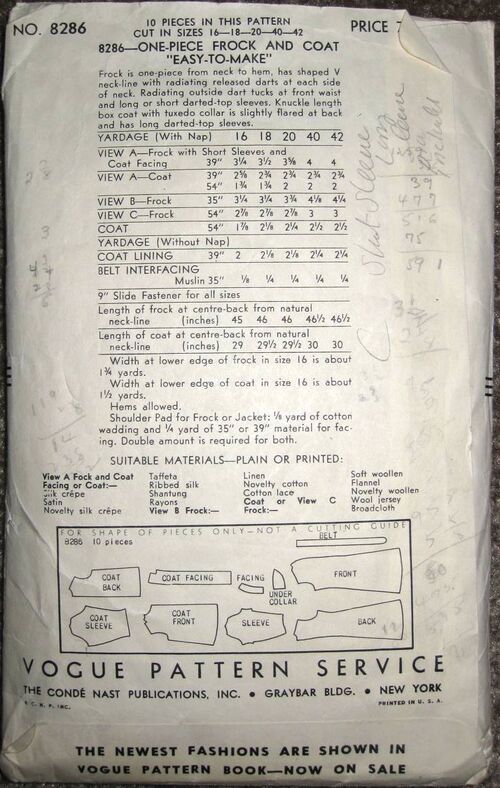 NO. 8286
10 PIECES IN THIS PATTERN
CUT IN SIZES 16—18—20—40—42
PRICE
8286—ONE-PIECE FROCK AND COAT
"EASY-TO-MAKE"
Frock is one-piece from neck to hem, has shaped V
neck-line with radiating released darts at each side
of neck. Radiating outside dart tucks at front waist
and long or short darted-top sleeves. Knuckle length
box coat with tuxedo collar is slightly flared at back
and has long darted-top sleeves.
YARDAGE (With Nap) 16 18 20 40 42
VIEW A—Frock with Short Sleeves and
Coat Facing 39" 3¼ 3½ 3⅝ 4 4
VIEW A—Coat 39" 2⅝ 2¾ 2¾ 2¾ 2¾
54" 1¾ 1¾ 2 2 2
VIEW B—Frock 35" 3¼ 3¼ 3¾ 4⅛ 4¼
VIEW C—Frock 54" 2⅞ 2⅞ 2⅞ 3 3
COAT 54" 1⅞ 2⅛ 2¼ 2½ 2½
YARDAGE (Without Nap)
COAT LINING 39" 2 2⅛ 2⅛ 2¼ 2¼
BELT INTERFACING
Muslin 35" ⅛ ¼ ¼ ¼ ¼
9" Slide Fastener for all sizes
Length of frock at centre-back from natural
neck-line (inches) 45 46 46 46½ 46½
Length of coat at centre-back from natural
neck-line (inches) 29 29½ 29½ 30 30
Width at lower edge of frock in size 16 is about
1¾ yards.
Width at lower edge of coat in size 16 is about
1½ yards.
Hems allowed.
Shoulder Pad for Frock or Jacket: ⅛ yard of cotton
wadding and ¼ yard of 35" or 39" material for fac-
ing. Double amount is required for both.
SUITABLE MATERIALS—PLAIN OR PRINTED:
View A Fock and Coat
Facing or Coat:—
Silk crêpe
Satin
Novelty silk crêpe
Taffeta
Ribbed silk
Shantung
Rayons
View B Frock:—
Linen
Novelty cotton
Cotton lace
Coat or View C
Frock:—
Soft woollen
Flannel
Novelty woollen
Wool jersey
Broadcloth
FOR SHAPE OF PIECES ONLY—NOT A CUTTING GUIDE
8286 10 pieces
BELT
COAT BACK
COAT FACING
FACING
UNDER COLLAR
FRONT
COAT SLEEVE
COAT FRONT
SLEEVE
BACK
VOGUE PATTERN SERVICE
THE CONDÉ NAST PUBLICATIONS, INC. • GRAYBAR BLDG. • NEW YORK
PRINTED IN U. S. A.
THE NEWEST FASHIONS ARE SHOWN IN
VOGUE PATTERN BOOK—NOW ON SALE